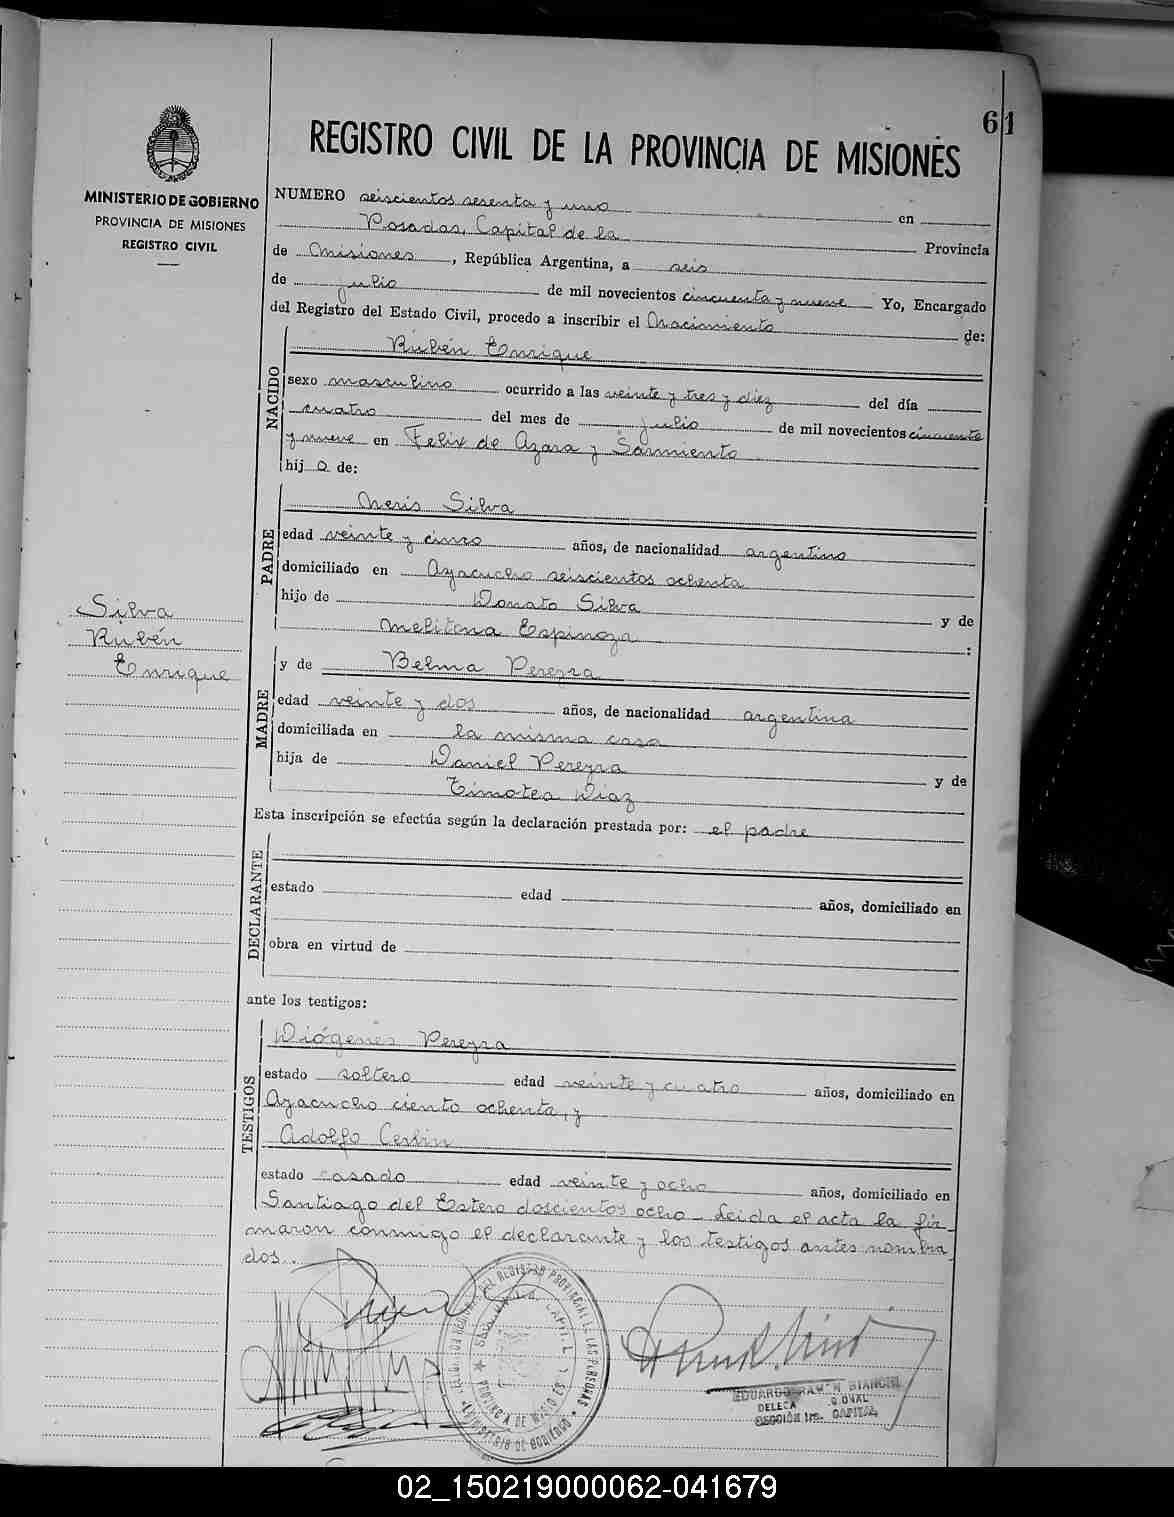 61
REGISTRO CIVIL DE LA PROVINCIA DE MISIONES
MINISTERIO DE GOBIERNO
PROVINCIA DE MISIONES
REGISTRO CIVIL
NUMERO seiscientos sesenta y uno en
Posadas, Capital de la Provincia
de Misiones, República Argentina, a seis
de julio de mil novecientos cincuenta y nueve Yo, Encargado
del Registro del Estado Civil, procedo a inscribir el Nacimiento de:
NACIDO
Rubén Enrique
sexo masculino ocurrido a las veinte y tres y diez del día
cuatro del mes de julio de mil novecientos cincuenta
y nueve en Felix de Azara y Sarmiento
hijo de:
PADRE
Neris Silva
edad veinte y cinco años, de nacionalidad argentino
domiciliado en Ayacucho seiscientos ochenta
hijo de Donato Silva y de
Melitona Espinoza :
Silva
Rubén
Enrique
MADRE
y de Belma Pereyra
edad veinte y dos años, de nacionalidad argentina
domiciliada en la misma casa
hija de Daniel Pereyra y de
Timotea Diaz
Esta inscripción se efectúa según la declaración prestada por: el padre
DECLARANTE
estado edad años, domiciliado en
obra en virtud de
ante los testigos:
TESTIGOS
Diógenes Pereyra
estado soltero edad veinte y cuatro años, domiciliado en
Ayacucho ciento ochenta, y
Adolfo
estado casado edad veinte y ocho años, domiciliado en
Santiago del Estero doscientos ocho - Leida el acta la fir-
maron conmigo el declarante y los testigos antes nombra
dos.
EDUARDO RAMON BIANCHI
SECCIÓN CAPITAL
02_150219000062-041679